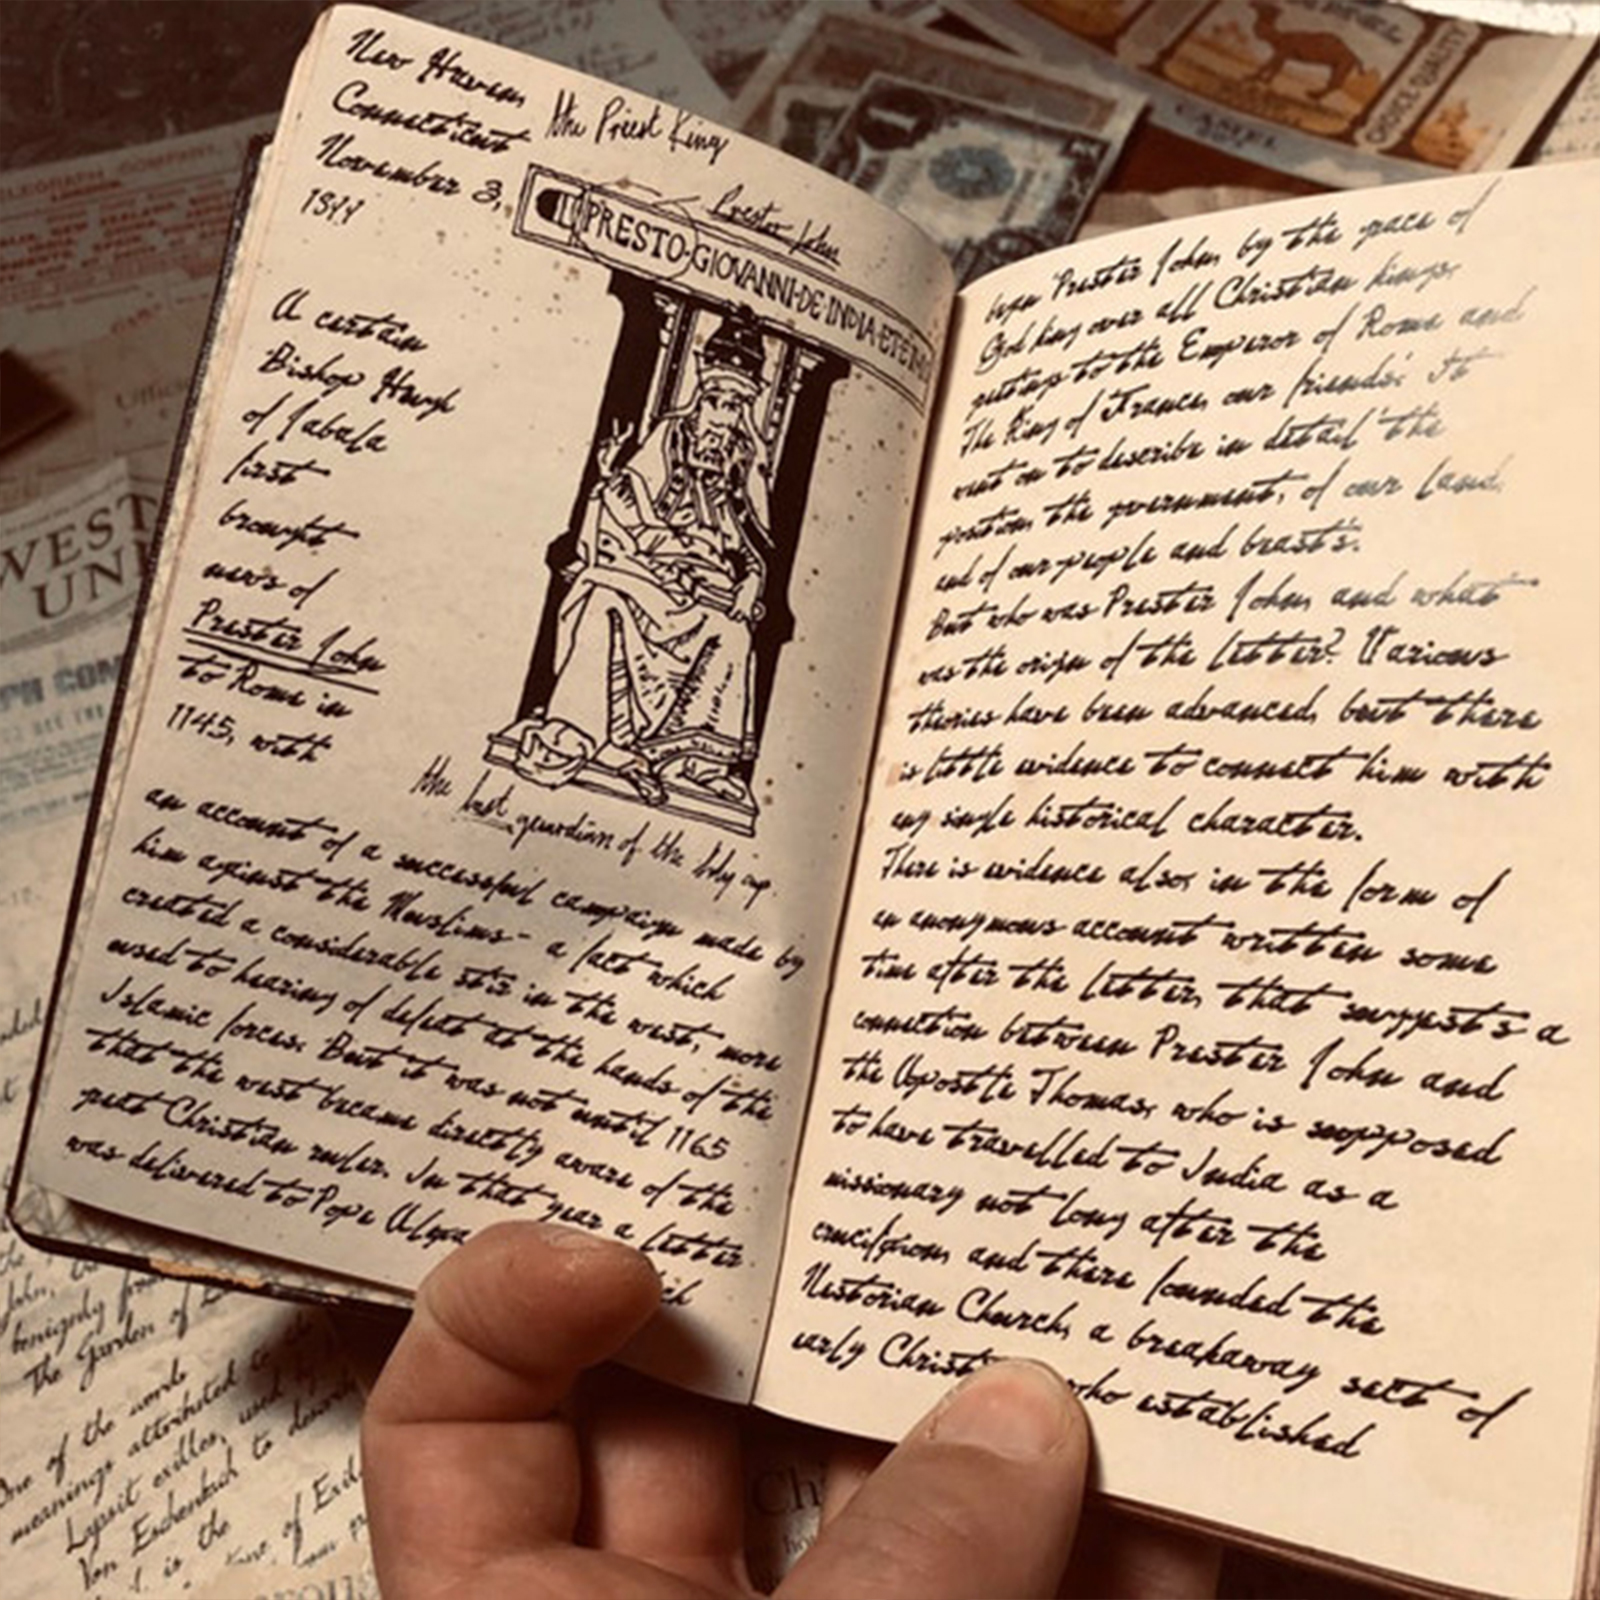 New Haven,
Connecticut
November 3,
the Priest King
Prestor John
IL PRESTO-GIOVANNI-DE INDIA-ET-ET
A certain
Bishop Hurgh
of Jabala
first
brought
news of
Prester John
to Rome in
1145, with
the last guardian of the holy cup.
an account of a successful campaign made by
him against the Muslims - a fact which
created a considerable stir in the west, more
used to hearing of defeat at the hands of the
Islamic forces. But it was not until 1165
that the west became directly aware of the
great Christian ruler. In that year a letter
was delivered to Pope
began 'Prester John, by the grace of
God king over all Christian kings,
greetings to the Emperor of Rome and
The King of France, our friends.' It
went on to describe in detail 'the
position, the government, of our land,
and of our people and beasts.
But who was Prester John, and what
was the origin of the letter? Various
theories have been advanced, but there
is little evidence to connect him with
any single historical character.
There is evidence also, in the form of
an anonymous account written some
time after the letter, that suggests a
connection between Prester John and
the Apostle Thomas, who is supposed
to have travelled to India as a
missionary not long after the
crucifixion, and there founded the
Nestorian Church, a breakaway sect of
early who established
WEST
UNI
CHOICE QUALITY
benignly
The Garden of
One of the words
meanings attributed to
Lapsit exilles, used by
Von Eschenbach to
is the